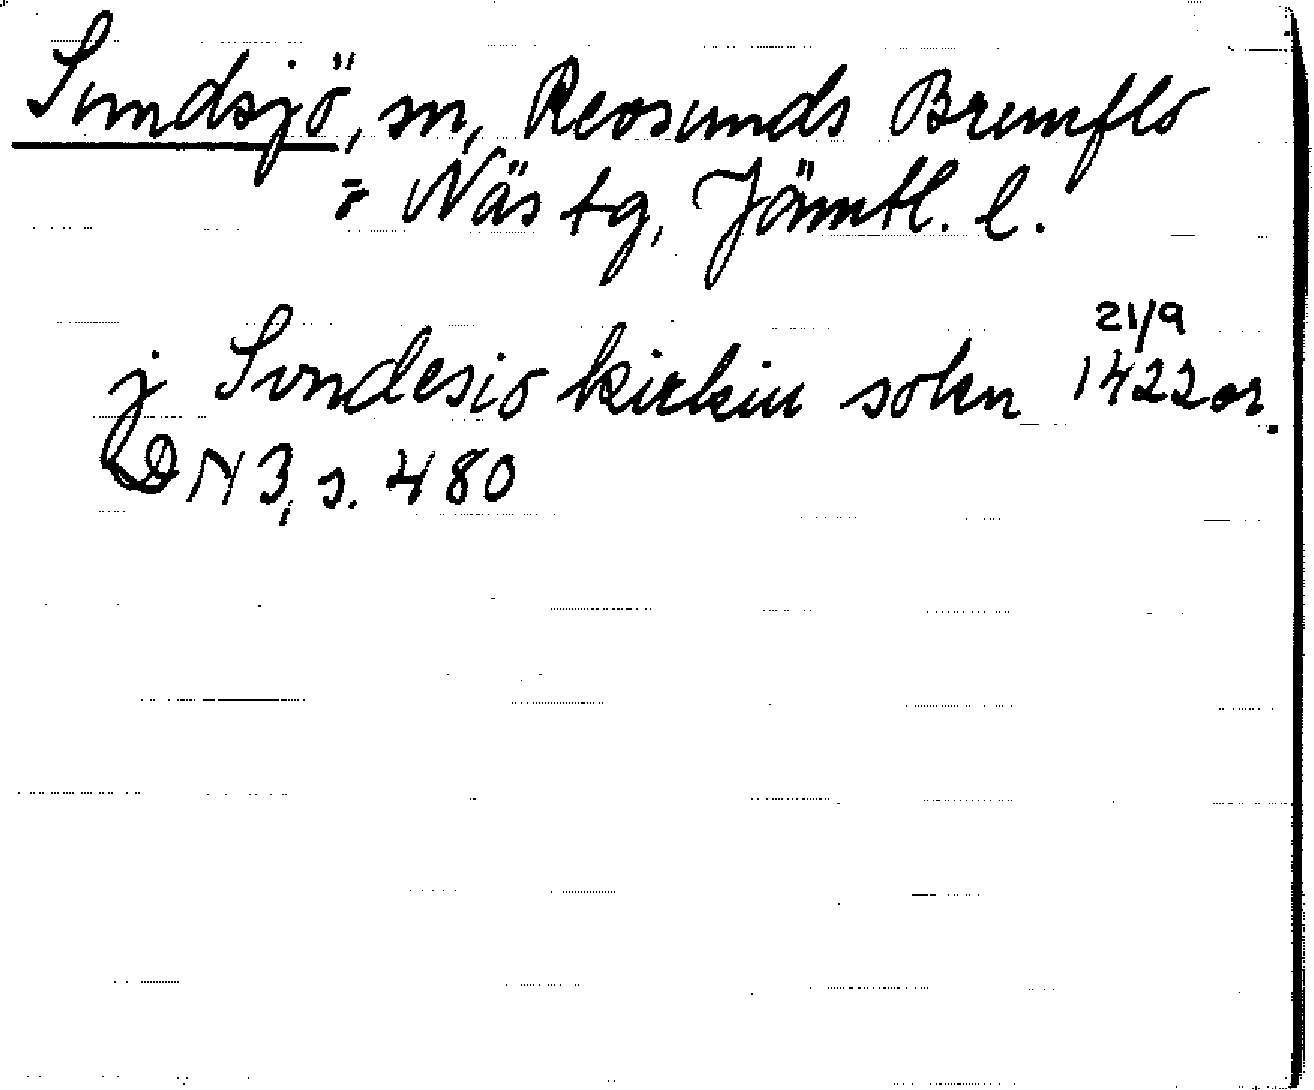 Sundsjö, sn, Revsunds Brunflo
= Näs tg, Jämtl. l.
21/9
j Sundesio kirkiu sokn 1422 or.
DN 3, s. 480